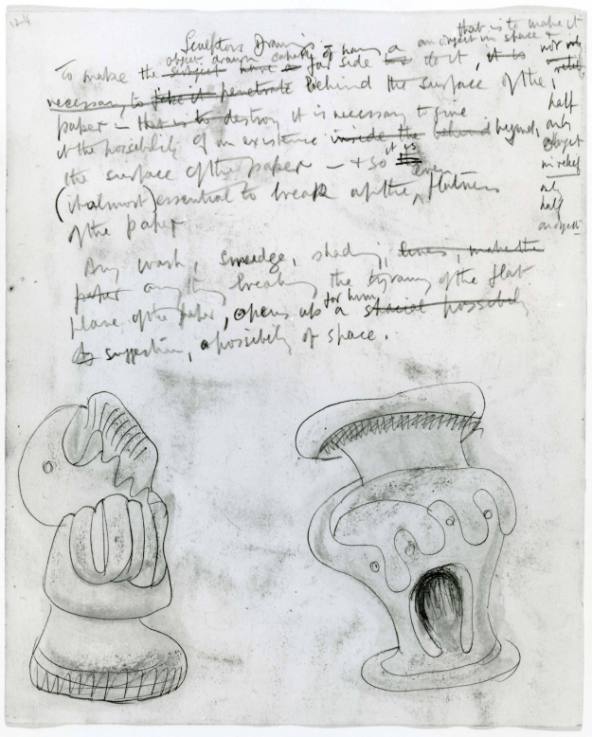 Sculptors Drawing
that is to make it
object drawn capable of having a an object in space &
To make the subject have a far side to it, it is not only
necessary, to take it penetrate behind the surface of the, relief,
paper — that is to destroy it is necessary to give half
it the possibility of an existence inside the behind beyond, only
object
the surface of the paper — + so it is in relief
even
(it almost) essential to break up the, flatness only
of the paper half
an object
Any wash, smudge, shading, lines, make the
paper anything breaking the tyranny of the flat
for him
plane of the paper, opens up a spacial possibility
suggestion, a possibility of space.